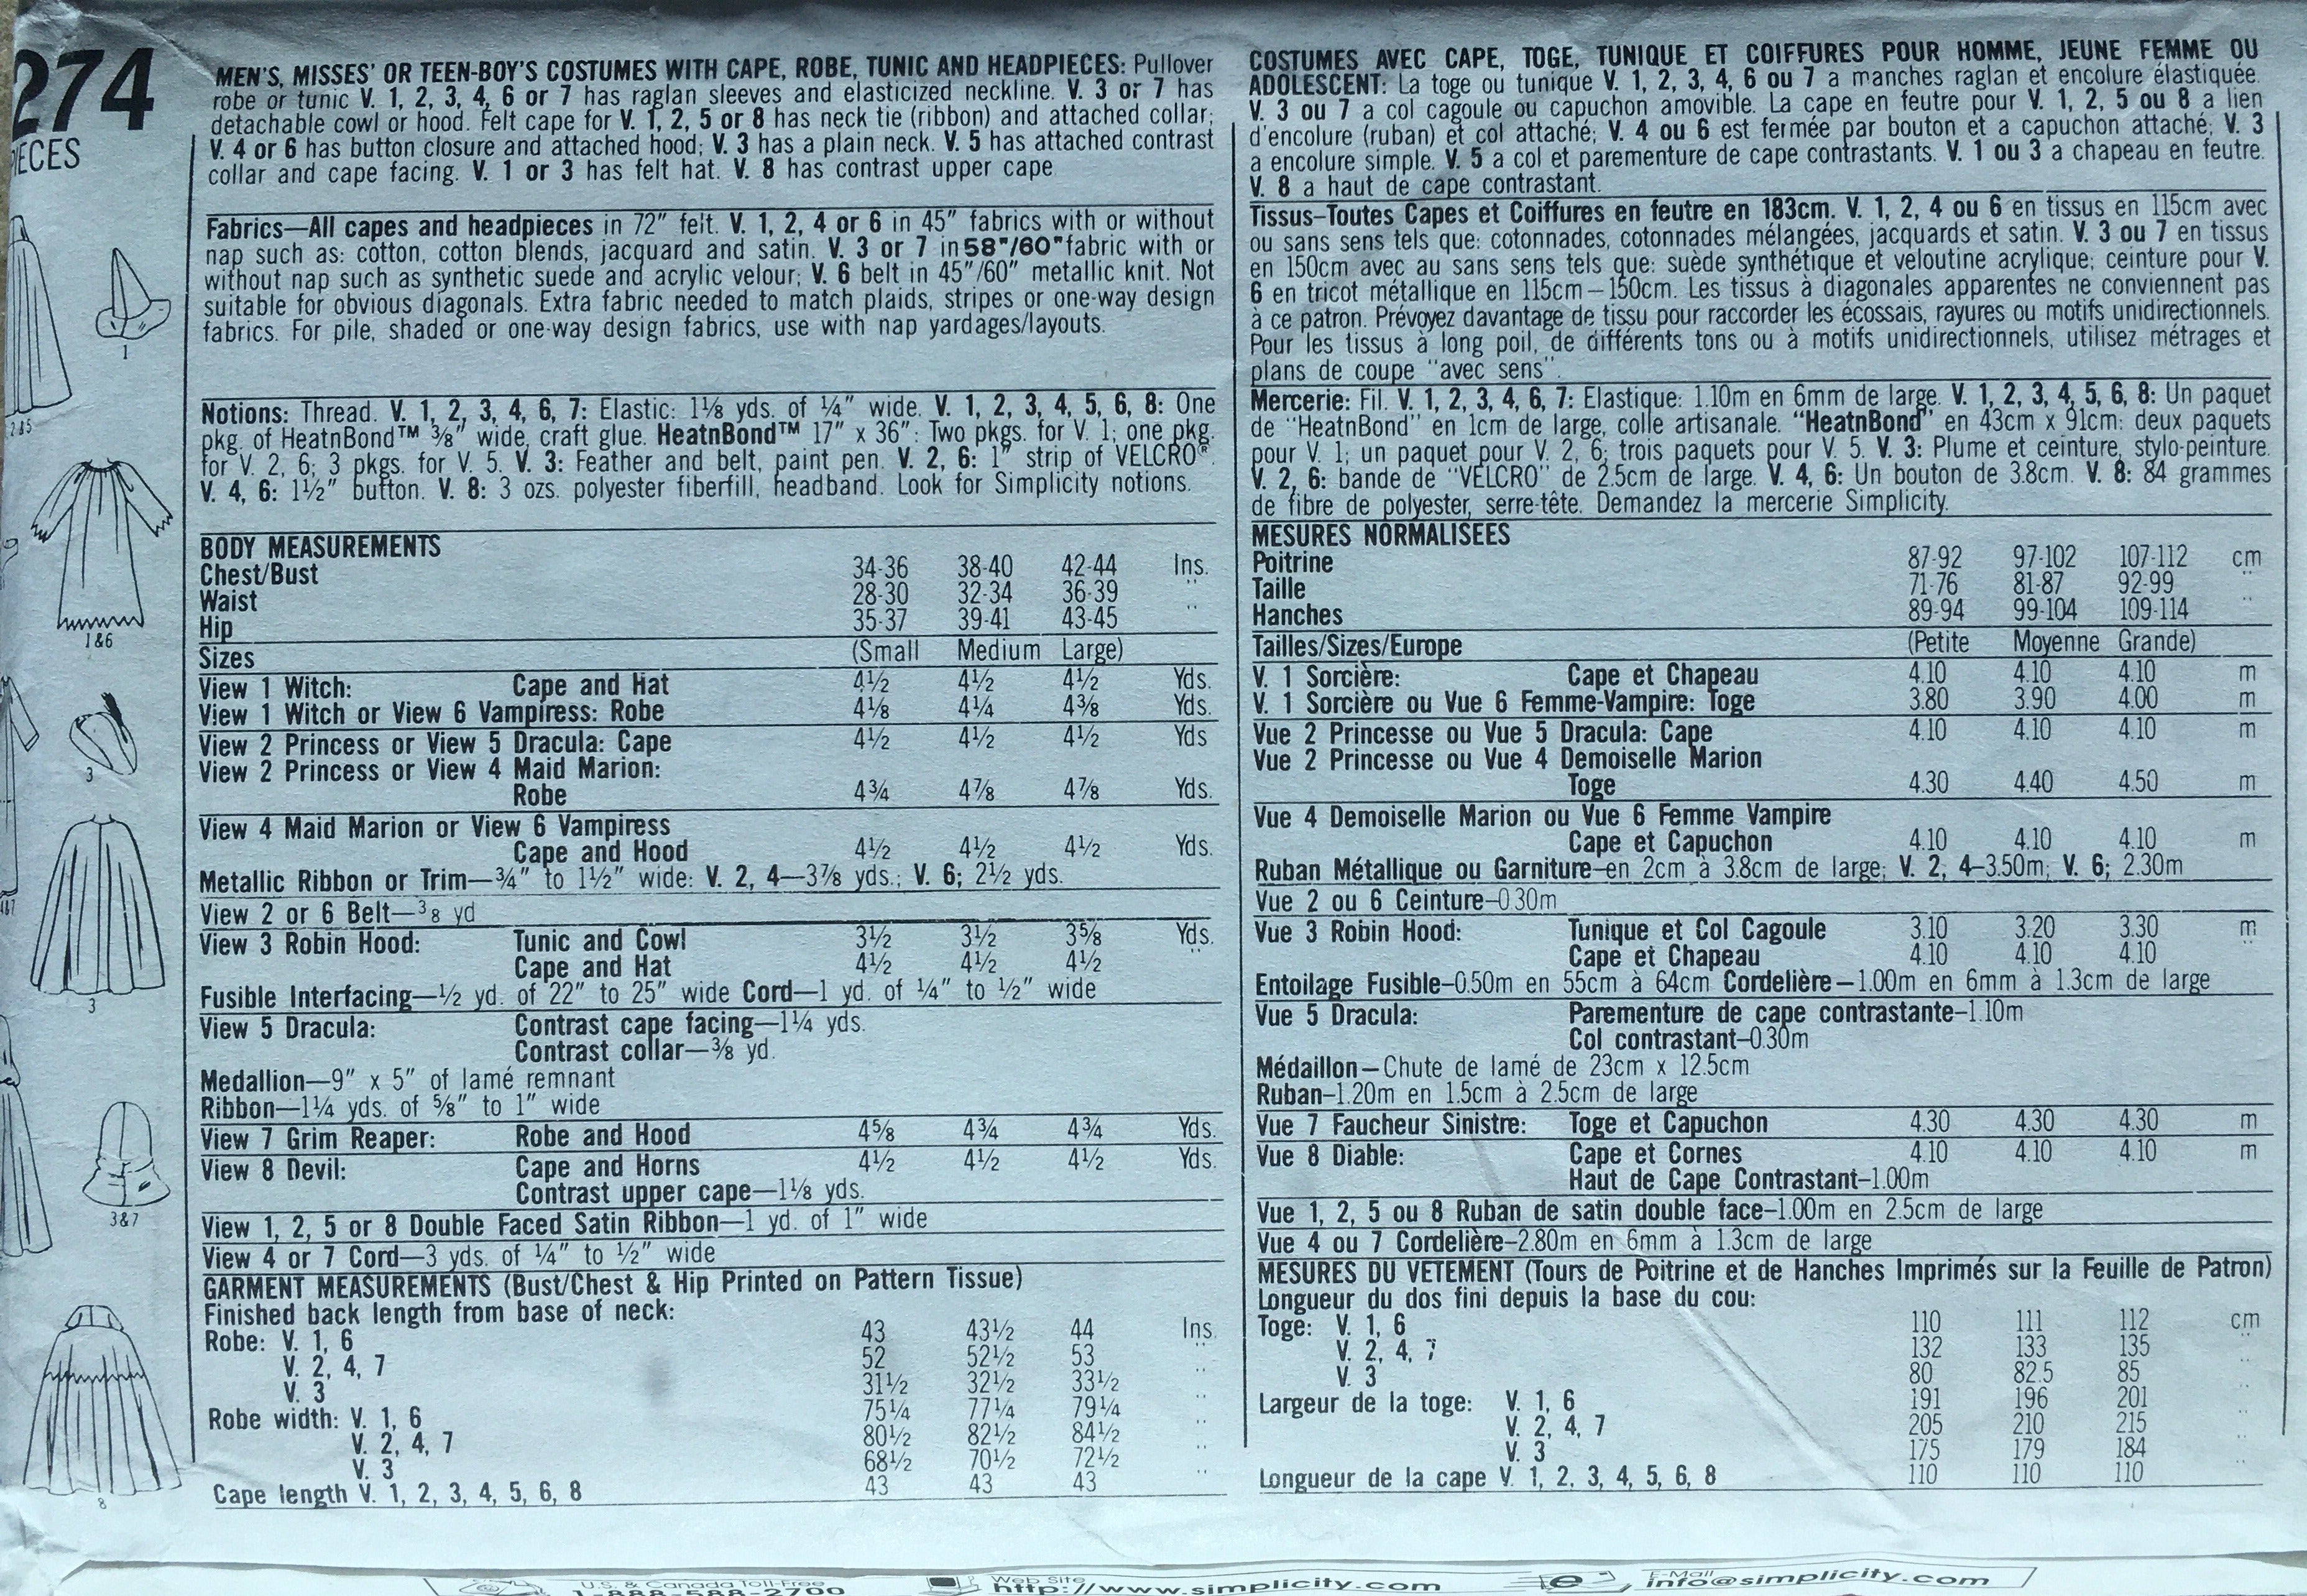 274
MEN'S, MISSES' OR TEEN-BOY'S COSTUMES WITH CAPE, ROBE, TUNIC AND HEADPIECES: Pullover
robe or tunic V. 1, 2, 3, 4, 6 or 7 has raglan sleeves and elasticized neckline. V. 3 or 7 has
detachable cowl or hood. Felt cape for V. 1, 2, 5 or 8 has neck tie (ribbon) and attached collar;
V. 4 or 6 has button closure and attached hood; V. 3 has a plain neck. V. 5 has attached contrast
collar and cape facing. V. 1 or 3 has felt hat. V. 8 has contrast upper cape
Fabrics—All capes and headpieces in 72" felt. V. 1, 2, 4 or 6 in 45" fabrics with or without
nap such as: cotton, cotton blends, jacquard and satin. V. 3 or 7 in 58"/60" fabric with or
without nap such as synthetic suede and acrylic velour; V. 6 belt in 45"/60" metallic knit. Not
suitable for obvious diagonals. Extra fabric needed to match plaids, stripes or one-way design
fabrics. For pile, shaded or one-way design fabrics, use with nap yardages/layouts.
Notions: Thread. V. 1, 2, 3, 4, 6, 7: Elastic: 1⅛ yds. of ¼" wide. V. 1, 2, 3, 4, 5, 6, 8: One
pkg. of HeatnBond™ ⅜" wide, craft glue. HeatnBond™ 17" x 36": Two pkgs. for V. 1; one pkg.
for V. 2, 6; 3 pkgs. for V. 5. V. 3: Feather and belt, paint pen. V. 2, 6: 1" strip of VELCRO®.
V. 4, 6: 1½" button. V. 8: 3 ozs. polyester fiberfill, headband. Look for Simplicity notions.
BODY MEASUREMENTS
Chest/Bust 34-36 38-40 42-44 Ins.
Waist 28-30 32-34 36-39 "
Hip 35-37 39-41 43-45 "
Sizes (Small Medium Large)
View 1 Witch: Cape and Hat 4½ 4½ 4½ Yds.
View 1 Witch or View 6 Vampiress: Robe 4⅛ 4¼ 4⅜ Yds.
View 2 Princess or View 5 Dracula: Cape 4½ 4½ 4½ Yds
View 2 Princess or View 4 Maid Marion:
Robe 4¾ 4⅞ 4⅞ Yds.
View 4 Maid Marion or View 6 Vampiress
Cape and Hood 4½ 4½ 4½ Yds.
Metallic Ribbon or Trim—¾" to 1½" wide: V. 2, 4—3⅞ yds.; V. 6; 2½ yds.
View 2 or 6 Belt—⅜ yd
View 3 Robin Hood: Tunic and Cowl 3½ 3½ 3⅝ Yds.
Cape and Hat 4½ 4½ 4½ "
Fusible Interfacing—½ yd. of 22" to 25" wide Cord—1 yd. of ¼" to ½" wide
View 5 Dracula: Contrast cape facing—1¼ yds.
Contrast collar—⅜ yd.
Medallion—9" x 5" of lamé remnant
Ribbon—1¼ yds. of ⅝" to 1" wide
View 7 Grim Reaper: Robe and Hood 4⅝ 4¾ 4¾ Yds.
View 8 Devil: Cape and Horns 4½ 4½ 4½ Yds.
Contrast upper cape—1⅛ yds.
View 1, 2, 5 or 8 Double Faced Satin Ribbon—1 yd. of 1" wide
View 4 or 7 Cord—3 yds. of ¼" to ½" wide
GARMENT MEASUREMENTS (Bust/Chest & Hip Printed on Pattern Tissue)
Finished back length from base of neck:
Robe: V. 1, 6 43 43½ 44 Ins.
V. 2, 4, 7 52 52½ 53 "
V. 3 31½ 32½ 33½ "
Robe width: V. 1, 6 75¼ 77¼ 79¼ "
V. 2, 4, 7 80½ 82½ 84½ "
V. 3 68½ 70½ 72½ "
Cape length V. 1, 2, 3, 4, 5, 6, 8 43 43 43 "
COSTUMES AVEC CAPE, TOGE, TUNIQUE ET COIFFURES POUR HOMME, JEUNE FEMME OU
ADOLESCENT: La toge ou tunique V. 1, 2, 3, 4, 6 ou 7 a manches raglan et encolure élastiquée.
V. 3 ou 7 a col cagoule ou capuchon amovible. La cape en feutre pour V. 1, 2, 5 ou 8 a lien
d'encolure (ruban) et col attaché; V. 4 ou 6 est fermée par bouton et a capuchon attaché; V. 3
a encolure simple. V. 5 a col et parementure de cape contrastants. V. 1 ou 3 a chapeau en feutre.
V. 8 a haut de cape contrastant.
Tissus-Toutes Capes et Coiffures en feutre en 183cm. V. 1, 2, 4 ou 6 en tissus en 115cm avec
ou sans sens tels que: cotonnades, cotonnades mélangées, jacquards et satin. V. 3 ou 7 en tissus
en 150cm avec au sans sens tels que: suède synthétique et veloutine acrylique; ceinture pour V.
6 en tricot métallique en 115cm—150cm. Les tissus à diagonales apparentes ne conviennent pas
à ce patron. Prévoyez davantage de tissu pour raccorder les écossais, rayures ou motifs unidirectionnels.
Pour les tissus à long poil, de différents tons ou à motifs unidirectionnels, utilisez métrages et
plans de coupe "avec sens".
Mercerie: Fil. V. 1, 2, 3, 4, 6, 7: Elastique: 1.10m en 6mm de large. V. 1, 2, 3, 4, 5, 6, 8: Un paquet
de "HeatnBond" en 1cm de large, colle artisanale. "HeatnBond" en 43cm x 91cm: deux paquets
pour V. 1; un paquet pour V. 2, 6; trois paquets pour V. 5. V. 3: Plume et ceinture, stylo-peinture.
V. 2, 6: bande de "VELCRO" de 2.5cm de large. V. 4, 6: Un bouton de 3.8cm. V. 8: 84 grammes
de fibre de polyester, serre-tête. Demandez la mercerie Simplicity.
MESURES NORMALISEES
Poitrine 87-92 97-102 107-112 cm
Taille 71-76 81-87 92-99 "
Hanches 89-94 99-104 109-114 "
Tailles/Sizes/Europe (Petite Moyenne Grande)
V. 1 Sorcière: Cape et Chapeau 4.10 4.10 4.10 m
V. 1 Sorcière ou Vue 6 Femme-Vampire: Toge 3.80 3.90 4.00 m
Vue 2 Princesse ou Vue 5 Dracula: Cape 4.10 4.10 4.10 m
Vue 2 Princesse ou Vue 4 Demoiselle Marion
Toge 4.30 4.40 4.50 m
Vue 4 Demoiselle Marion ou Vue 6 Femme Vampire
Cape et Capuchon 4.10 4.10 4.10 m
Ruban Métallique ou Garniture-en 2cm à 3.8cm de large; V. 2; 4-3.50m; V. 6; 2.30m
Vue 2 ou 6 Ceinture-0.30m
Vue 3 Robin Hood: Tunique et Col Cagoule 3.10 3.20 3.30 m
Cape et Chapeau 4.10 4.10 4.10 "
Entoilage Fusible-0.50m en 55cm à 64cm Cordelière—1.00m en 6mm à 1.3cm de large
Vue 5 Dracula: Parementure de cape contrastante-1.10m
Col contrastant-0.30m
Médaillon—Chute de lamé de 23cm x 12.5cm
Ruban-1.20m en 1.5cm à 2.5cm de large
Vue 7 Faucheur Sinistre: Toge et Capuchon 4.30 4.30 4.30 m
Vue 8 Diable: Cape et Cornes 4.10 4.10 4.10 m
Haut de Cape Contrastant-1.00m
Vue 1, 2, 5 ou 8 Ruban de satin double face-1.00m en 2.5cm de large
Vue 4 ou 7 Cordelière-2.80m en 6mm à 1.3cm de large
MESURES DU VETEMENT (Tours de Poitrine et de Hanches Imprimés sur la Feuille de Patron)
Longueur du dos fini depuis la base du cou:
Toge: V. 1, 6 110 111 112 cm
V. 2, 4, 7 132 133 135 "
V. 3 80 82.5 85 "
Largeur de la toge: V. 1, 6 191 196 201 "
V. 2, 4, 7 205 210 215 "
V. 3 175 179 184 "
Longueur de la cape V. 1, 2, 3, 4, 5, 6, 8 110 110 110 "
1
1&6
3
3
3&7
8
U.S. & Canada Toll-Free
1-888-588-2700
Web Site
http://www.simplicity.com
E-Mail
info@simplicity.com